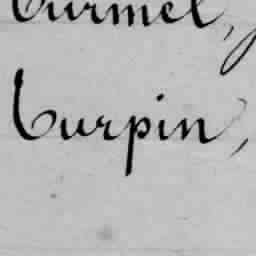 Turmel,
Turpin,